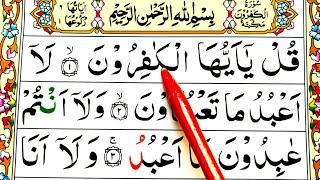 سُورَةُ الْكٰفِرُوْنَ مَكِّيَّةٌ
بِسْمِ اللهِ الرَّحْمٰنِ الرَّحِيْمِ
قُلْ يٰٓاَيُّهَا الْكٰفِرُوْنَ ۙ﴿۱﴾ لَآ
اَعْبُدُ مَا تَعْبُدُوْنَ ۙ﴿۲﴾ وَلَآ اَنْتُمْ
عٰبِدُوْنَ اَعْبُدُ ۚ﴿۳﴾ وَلَآ اَنَا